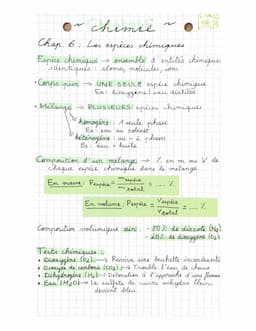 ~ chimie ~
Chap. 6 : Les espèces chimiques
Espèce chimique → ensemble d'entités chimiques
identiques : atomes, molécules, ions
• Corps pur → UNE SEULE espèce chimique
Ex : dioxygène / eau distillée
• Mélange → PLUSIEURS espèces chimiques
↳ homogène : 1 seule phase
Ex : eau au robinet
↳ hétérogène : au - 2 phases
Ex : eau + huile
Composition d'un mélange → % en m ou V de
chaque espèce chimique dans le mélange
En masse : Pespèce = mespèce / mtotal = .... %
En volume : Pespèce = Vespèce / Vtotal = .... %
Composition volumique air : - 80% de diazote (N2)
- 20% de dioxygène (O2)
Tests chimiques :
• Dioxygène (O2) → Ravive une buchette incandescente
• Dioxyde de carbone (CO2) → Trouble l'eau de chaux
• Dihydrogène (H2) → Détonation à l'approche d'une flamme
• Eau (H2O) → Le sulfate de cuivre anhydre blanc
devient bleu